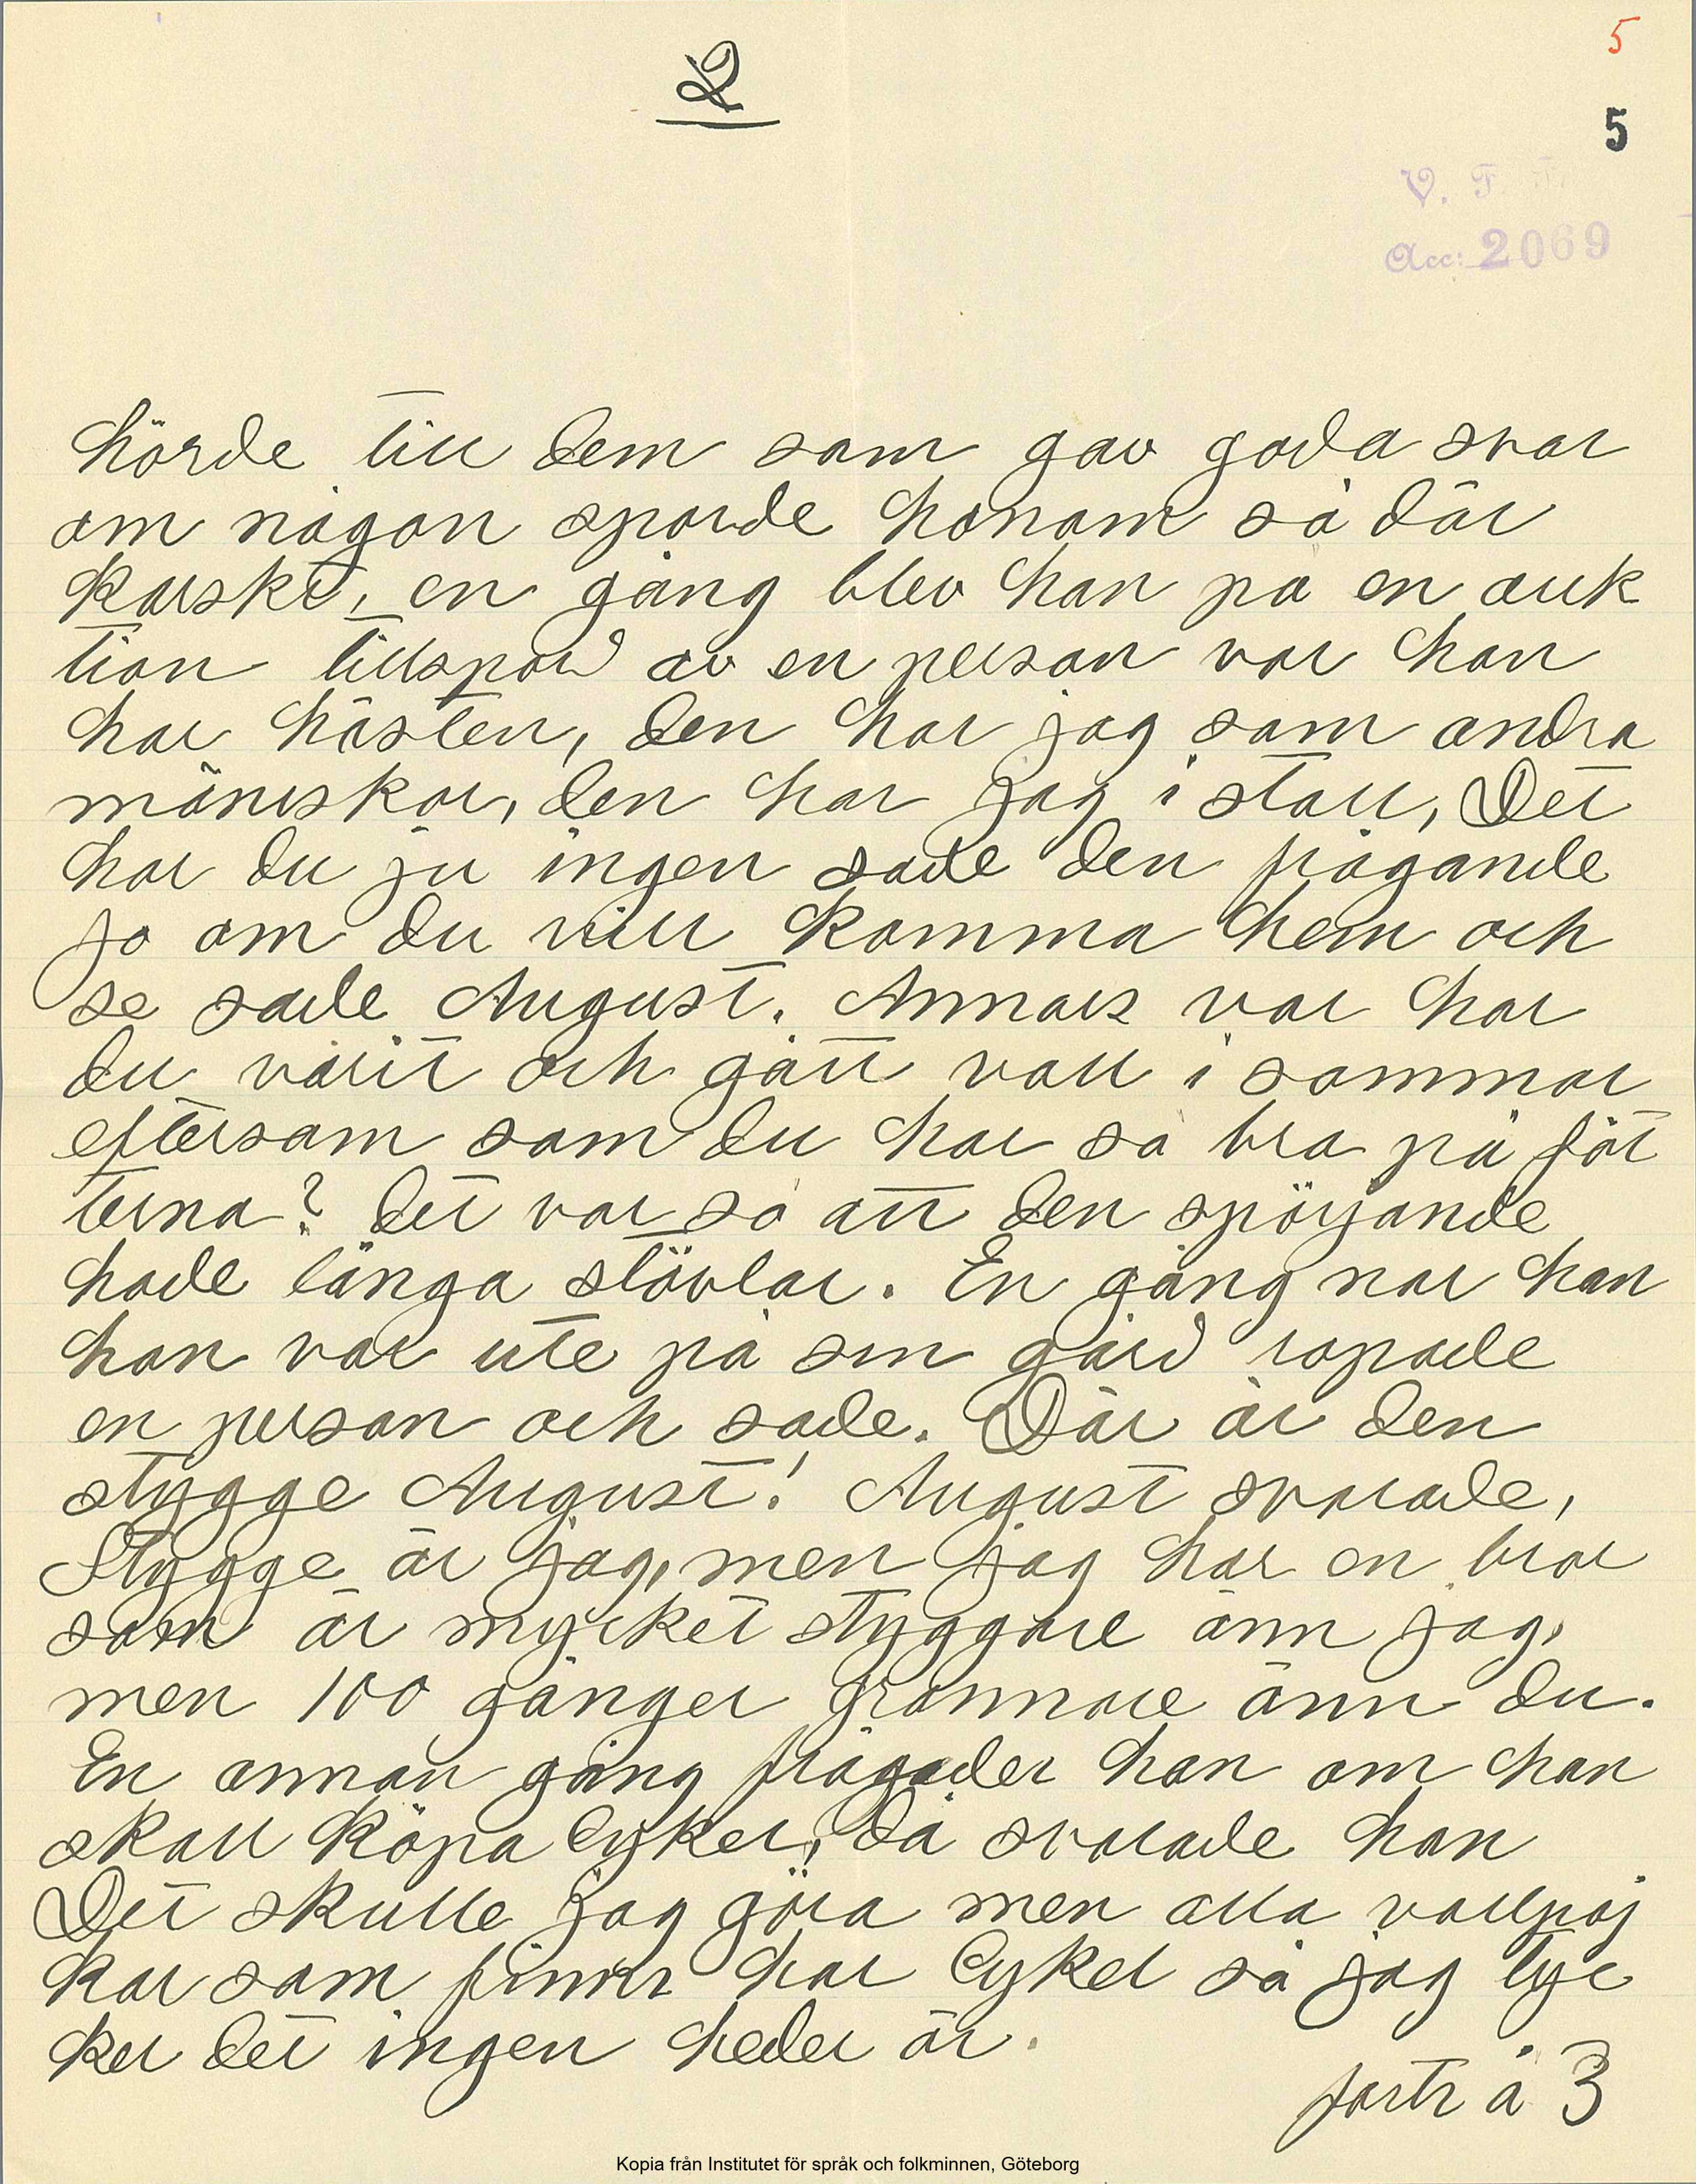 2
5
5
V. F.
Acc: 2069
hörde till dem som gav goda svar
om någon sporde honom så där
karskt, en gång blev han på en auk
tion tillspord av en person var han
har hästen, den har jag som andra
mäniskor, den har jag i stall, Det
har du ju ingen sade den frågande
jo om du vill komma hem och
se sade August. Annars var har
du varit och gått vall i sommar
eftersom som du har så bra på föt
terna? det var så att den spörjande
hade långa stövlar. En gång när han
han var ute på sin gård ropade
en person och sade. Där är den
stygge August! August svarade,
Stygge är jag, men jag har en bror
som är mycket styggare änn jag,
men 100 gånger grannare änn du.
En annan gång frågades han om han
skall köpa Cykel, då svarade han
Det skulle jag göra men alla vallpoj
kar som finns har Cykel så jag tyc
ker det ingen heder är.
forts å 3
Kopia från Institutet för språk och folkminnen, Göteborg